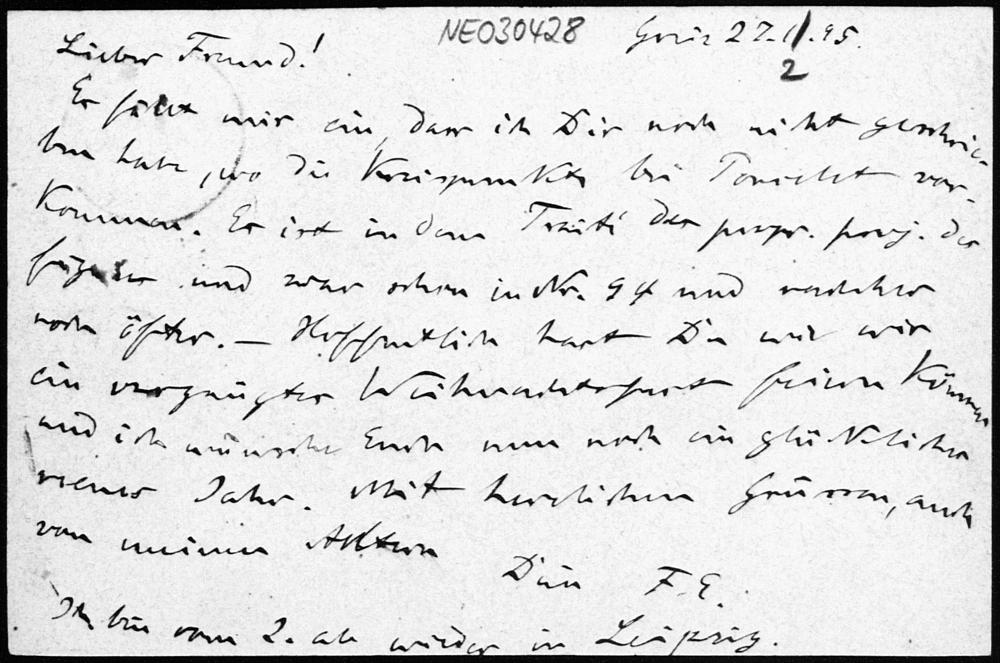 NEO30428 Greiz 27.1/2.95.
Lieber Freund!
Es fällt mir ein, dass ich Dir noch nicht geschrie-
ben habe, wo die Kreispunkte bei Poncelet vor-
kommen. Es ist in dem Traité des propr. proj. des
figures und zwar schon in Nr. 94 und nachher
noch öfter. — Hoffentlich hast Du wie wir
ein vergnügtes Weihnachtsfest feiern können
und ich wünsche Euch nun noch ein glückliches
neues Jahr. Mit herzlichen Grüssen, auch
von meinen Eltern
Dein F. E.
Ich bin vom 2. ab wieder in Leipzig.